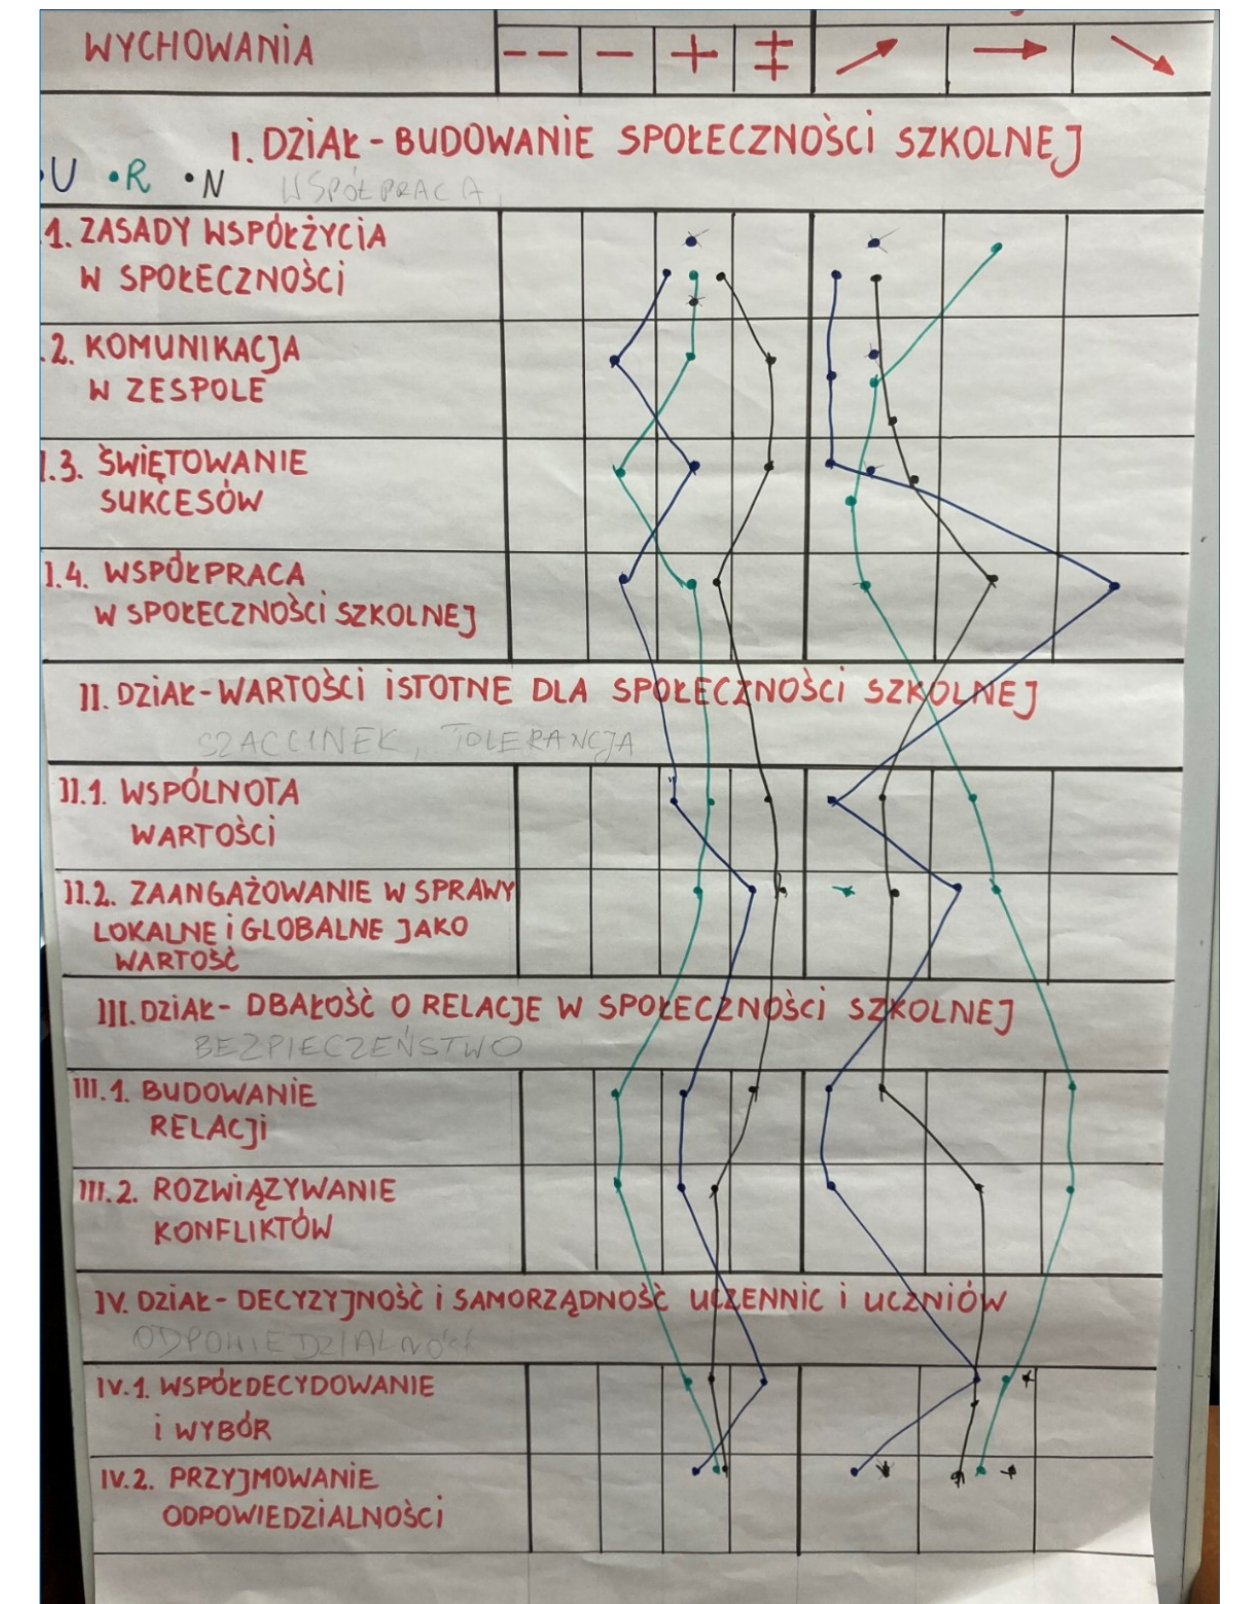 WYCHOWANIA -- - + ‡ ↗ → ↘
I. DZIAŁ - BUDOWANIE SPOŁECZNOŚCI SZKOLNEJ
•U •R •N WSPÓŁPRACA
1. ZASADY WSPÓŁŻYCIA
W SPOŁECZNOŚCI
.2. KOMUNIKACJA
W ZESPOLE
I.3. ŚWIĘTOWANIE
SUKCESÓW
I.4. WSPÓŁPRACA
W SPOŁECZNOŚCI SZKOLNEJ
II. DZIAŁ - WARTOŚCI ISTOTNE DLA SPOŁECZNOŚCI SZKOLNEJ
SZACUNEK, TOLERANCJA
II.1. WSPÓLNOTA
WARTOŚCI
II.2. ZAANGAŻOWANIE W SPRAWY
LOKALNE i GLOBALNE JAKO
WARTOŚĆ
III. DZIAŁ - DBAŁOŚĆ O RELACJE W SPOŁECZNOŚCI SZKOLNEJ
BEZPIECZEŃSTWO
III.1. BUDOWANIE
RELACJI
III.2. ROZWIĄZYWANIE
KONFLIKTÓW
IV. DZIAŁ - DECYZYJNOŚĆ i SAMORZĄDNOŚĆ UCZENNIC i UCZNIÓW
ODPOWIEDZIALNOŚĆ
IV.1. WSPÓŁDECYDOWANIE
i WYBÓR
IV.2. PRZYJMOWANIE
ODPOWIEDZIALNOŚCI